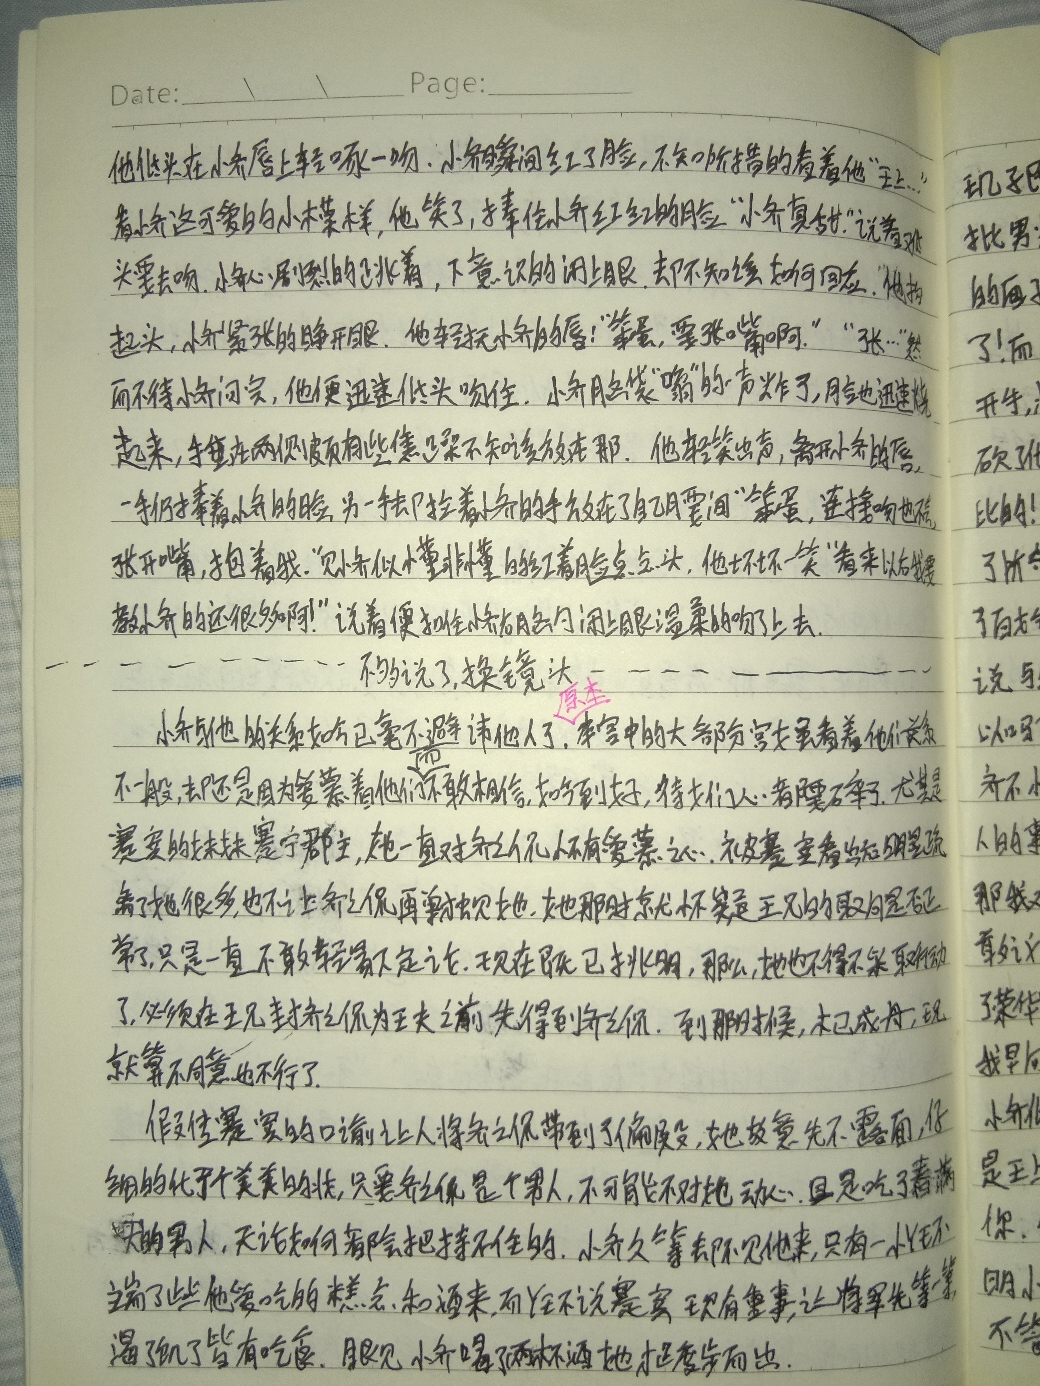 Date: \ \ Page:
他低头在小齐唇上轻啄一吻.小齐瞬间红了脸,不知所措的看着他"王上…"
看小齐这可爱的小模样,他笑了,捧住小齐红红的脸"小齐真甜."说着又低
头要去吻.小齐心剧烈的跳着,下意识的闭上眼,却不知该如何回应.他抬
起头,小齐紧张的睁开眼.他轻抚小齐的唇!"笨蛋,要张嘴啊.""张…"然
而不待小齐问完,他便迅速低头吻住.小齐脑袋"嗡"的一声炸了,脸也迅速烧
起来,手垂在两侧颇有些僵硬不知该放在那.他轻笑出声,离开小齐的唇,
一手仍捧着小齐的脸,另一手却拉着小齐的手放在了自己腰间"笨蛋,连接吻也不会
张开嘴,抱着我."见小齐似懂非懂的红着脸点点头,他坏坏一笑"看来以后我要
教小齐的还很多啊!"说着便扣住小齐后脑勺闭上眼温柔的吻了上去.
不多说了,换镜头
小齐与他的关系如今已毫不避讳他人了.原本宫中的大部份宫女虽看着他们关系
不一般,却还是因为爱慕着他们而不敢相信,如今到好,待女们人心都碎了.尤其是
蹇宾的妹妹蹇宁郡主,她一直对齐之侃怀有爱慕之心.被蹇宾看出后明显疏
离了她很多,也不让齐之侃再单独见她.她那时就怀疑王兄的取向是否正
常了,只是一直不敢轻易下定论.现在既已挑明,那么,她也不得不采取行动
了,必须在王兄封齐之侃为王夫之前先得到齐之侃.到那时候,木已成舟,王兄
就算不同意也不行了.
假传蹇宾的口谕让人将齐之侃带到了偏殿,她故意先不露面,仔
细的化了个美美的妆,只要齐之侃是个男人,不可能不对她动心.且是吃了春满
的男人,无论如何都会把持不住的.小齐久等却不见他来,只有一小侍
端了些他爱吃的糕点和酒来,而说蹇宾现有重事,让将军先等一等,
渴了饥了皆有吃食.眼见小齐喝了两杯酒她才踱步而出.